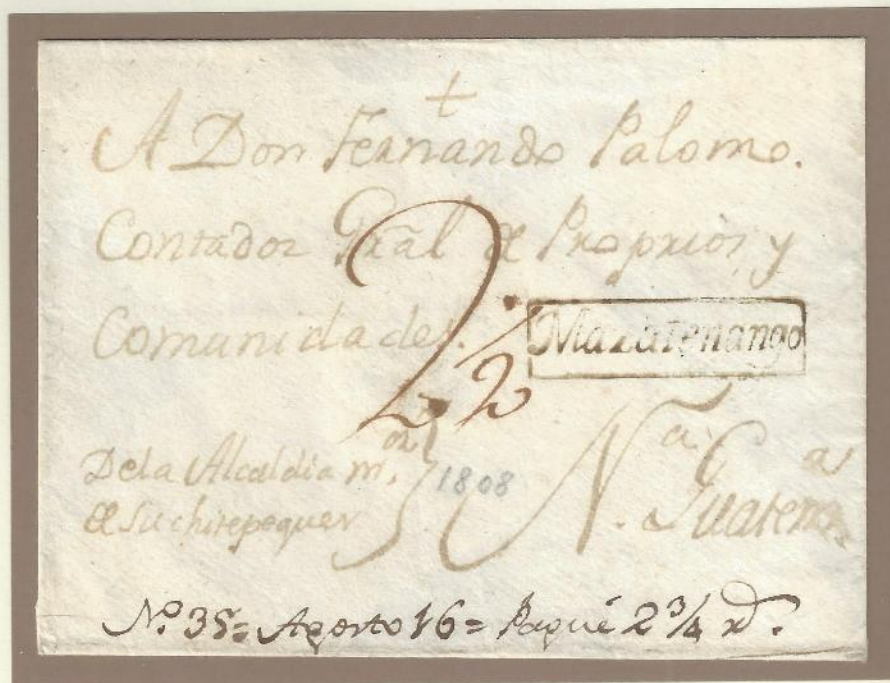 +
A Don Fernando Palomo.
Contador Gräl de Proprios, y
Comunidades.
2 1/2
Mazatenango
De la Alcaldia m.or
de Suchitepeques
1808
N.a Guatem.a
N.o 35= Agosto 16= Pagué 2 3/4 r.s